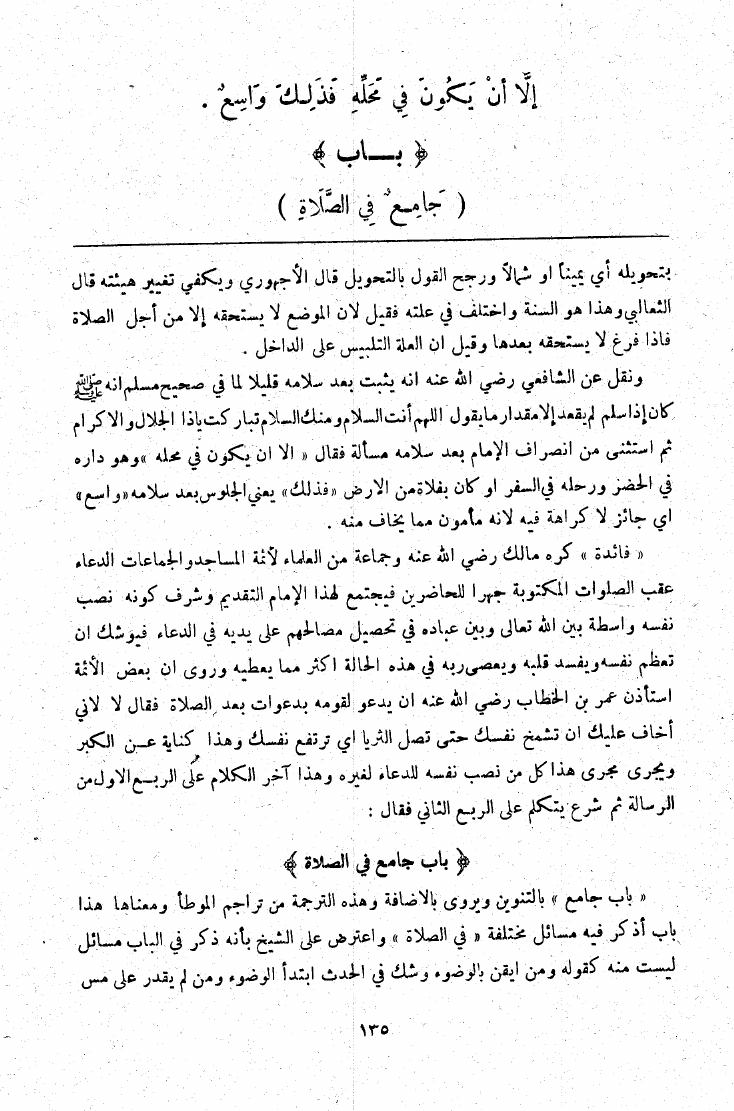 إِلَّا أَنْ يَكُونَ فِي مَحَلِّهِ فَذَلِكَ وَاسِعٌ .
﴿ بــاب ﴾
( جَامِعٌ فِي الصَّلَاةِ )
بتحويله أي يميناً او شمالاً ورجح القول بالتحويل قال الأجهوري ويكفي تغيير هيئته قال
الثعالبي وهذا هو السنة واختلف في علته فقيل لان الموضع لا يستحقه إلا من أجل الصلاة
فاذا فرغ لا يستحقه بعدها وقيل ان العلة التلبيس على الداخل .
ونقل عن الشافعي رضي الله عنه انه يثبت بعد سلامه قليلا لما في صحيح مسلم انه ﷺ
كان إذا سلم لم يقعد إلا مقدار ما يقول اللهم أنت السلام ومنك السلام تباركت ياذا الجلال والاكرام
ثم استثنى من انصراف الإمام بعد سلامه مسألة فقال « الا ان يكون في محله » وهو داره
في الحضر ورحله في السفر او كان بفلاة من الارض «فذلك» يعني الجلوس بعد سلامه «واسع»
اي جائز لا كراهة فيه لانه مأمون مما يخاف منه .
« فائدة » كره مالك رضي الله عنه وجماعة من العلماء لأئمة المساجد والجماعات الدعاء
عقب الصلوات المكتوبة جهرا للحاضرين فيجتمع لهذا الإمام التقديم وشرف كونه نصب
نفسه واسطة بين الله تعالى وبين عباده في تحصيل مصالحهم على يديه في الدعاء فيوشك ان
تعظم نفسه ويفسد قلبه ويعصى ربه في هذه الحالة اكثر مما يعطيه وروى ان بعض الأئمة
استأذن عمر بن الخطاب رضي الله عنه ان يدعو لقومه بدعوات بعد الصلاة فقال لا لاني
أخاف عليك ان تشمخ نفسك حتى تصل الثريا اي ترتفع نفسك وهذا كناية عــن الكبر
ويجرى مجرى هذا كل من نصب نفسه للدعاء لغيره وهذا آخر الكلام على الربــع الاول من
الرسالة ثم شرع يتكلم على الربع الثاني فقال :
﴿ باب جامع في الصلاة ﴾
« باب جامع » بالتنوين ويروى بالاضافة وهذه الترجمة من تراجم الموطأ ومعناها هذا
باب أذكر فيه مسائل مختلفة « في الصلاة » واعترض على الشيخ بأنه ذكر في الباب مسائل
ليست منه كقوله ومن ايقن بالوضوء وشك في الحدث ابتدأ الوضوء ومن لم يقدر على مس
١٣٥